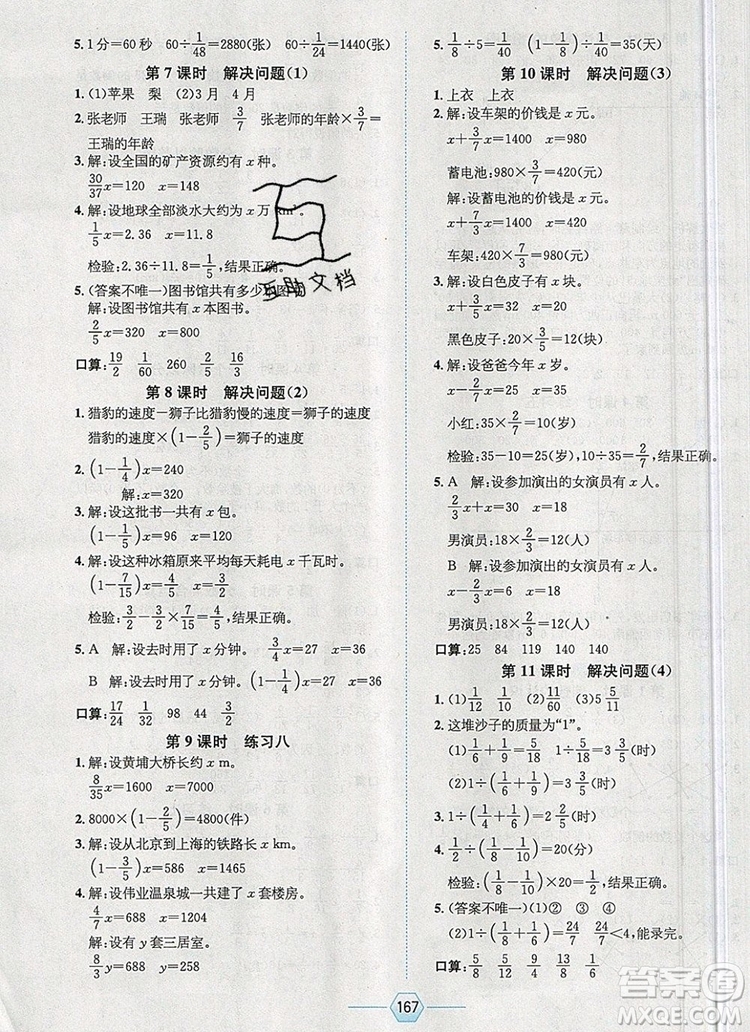 5. 1分=60秒 60÷1/48=2880(张) 60÷1/24=1440(张)
第7课时 解决问题(1)
1. (1)苹果 梨 (2)3月 4月
2. 张老师 王瑞 张老师 3/7 张老师的年龄×3/7=
王瑞的年龄
3. 解:设全国的矿产资源约有x种。
30/37x=120 x=148
4. 解:设地球全部淡水大约为x万km³。
1/5x=2.36 x=11.8
检验:2.36÷11.8=1/5,结果正确。
5. (答案不唯一)图书馆共有多少本图书
解:设图书馆共有x本图书。
2/5x=320 x=800
口算:19/2 1/60 260 2/5 16/3
第8课时 解决问题(2)
1. 猎豹的速度-狮子比猎豹慢的速度=狮子的速度
猎豹的速度×(1-2/5)=狮子的速度
2. (1-1/4)x=240
解:x=320
3. 解:设这批书一共有x包。
(1-1/5)x=96 x=120
4. 解:设这种冰箱原来平均每天耗电x千瓦时。
(1-7/15)x=4/5 x=3/2
检验:3/2-3/2×7/15=4/5,结果正确。
5. A 解:设去时用了x分钟。3/4x=27 x=36
B 解:设去时用了x分钟。(1-1/4)x=27 x=36
口算:17/24 1/32 98 44 2/9
第9课时 练习八
1. 解:设黄埔大桥长约x m。
8/35x=1600 x=7000
2. 8000×(1-3/4)=2000(只)
3. 解:设从北京到上海的铁路长x km。
(1-3/5)x=586 x=1465
4. 解:设伟业温泉城一共建了x套楼房。
4/7x=688 x=1204
解:设有y套三居室。
8/3y=688 y=258
5. 1/5÷5=1/40 (1-1/8)÷1/40=35(天)
第10课时 解决问题(3)
1. 上衣 上衣
2. 解:设车架的价钱是x元。
x+3/7x=1400 x=980
蓄电池:980×3/7=420(元)
解:设蓄电池的价钱是x元。
x+7/3x=1400 x=420
车架:420×7/3=980(元)
3. 解:设白色皮子有x块。
x+3/5x=32 x=20
黑色皮子:20×3/5=12(块)
4. 解:设爸爸今年x岁。
x-2/7x=25 x=35
小红:35×2/7=10(岁)
检验:35-10=25(岁),10÷35=2/7,结果正确。
5. A 解:设参加演出的女演员有x人。
x+2/3x=30 x=18
男演员:18×2/3=12(人)
B 解:设参加演出的女演员有x人。
x-2/3x=6 x=18
男演员:18×2/3=12(人)
口算:25 84 119 140 140
第11课时 解决问题(4)
1. (1)1/12 1/10 (2)11/60 (3)5 5/11
2. 这堆沙子的质量为“1”。
(1)1/6+1/9=5/18 1÷5/18=18/5(时)
(2)1÷(1/6+1/9)=18/5(时)
3. 1÷(1/4+1/6)=12/5(时)
4. 1/2÷(1/8-1/10)=20(分)
检验:(1/8-1/10)×20=1/2,结果正确。
5. (答案不唯一)(1)② ③ ④
(2)1÷(1/8+1/6)=24/7 24/7<4,能录完。
口算:8/15 4/9 3/5 7/24 5/4
167
互助文档
答案圈
MXQE.COM